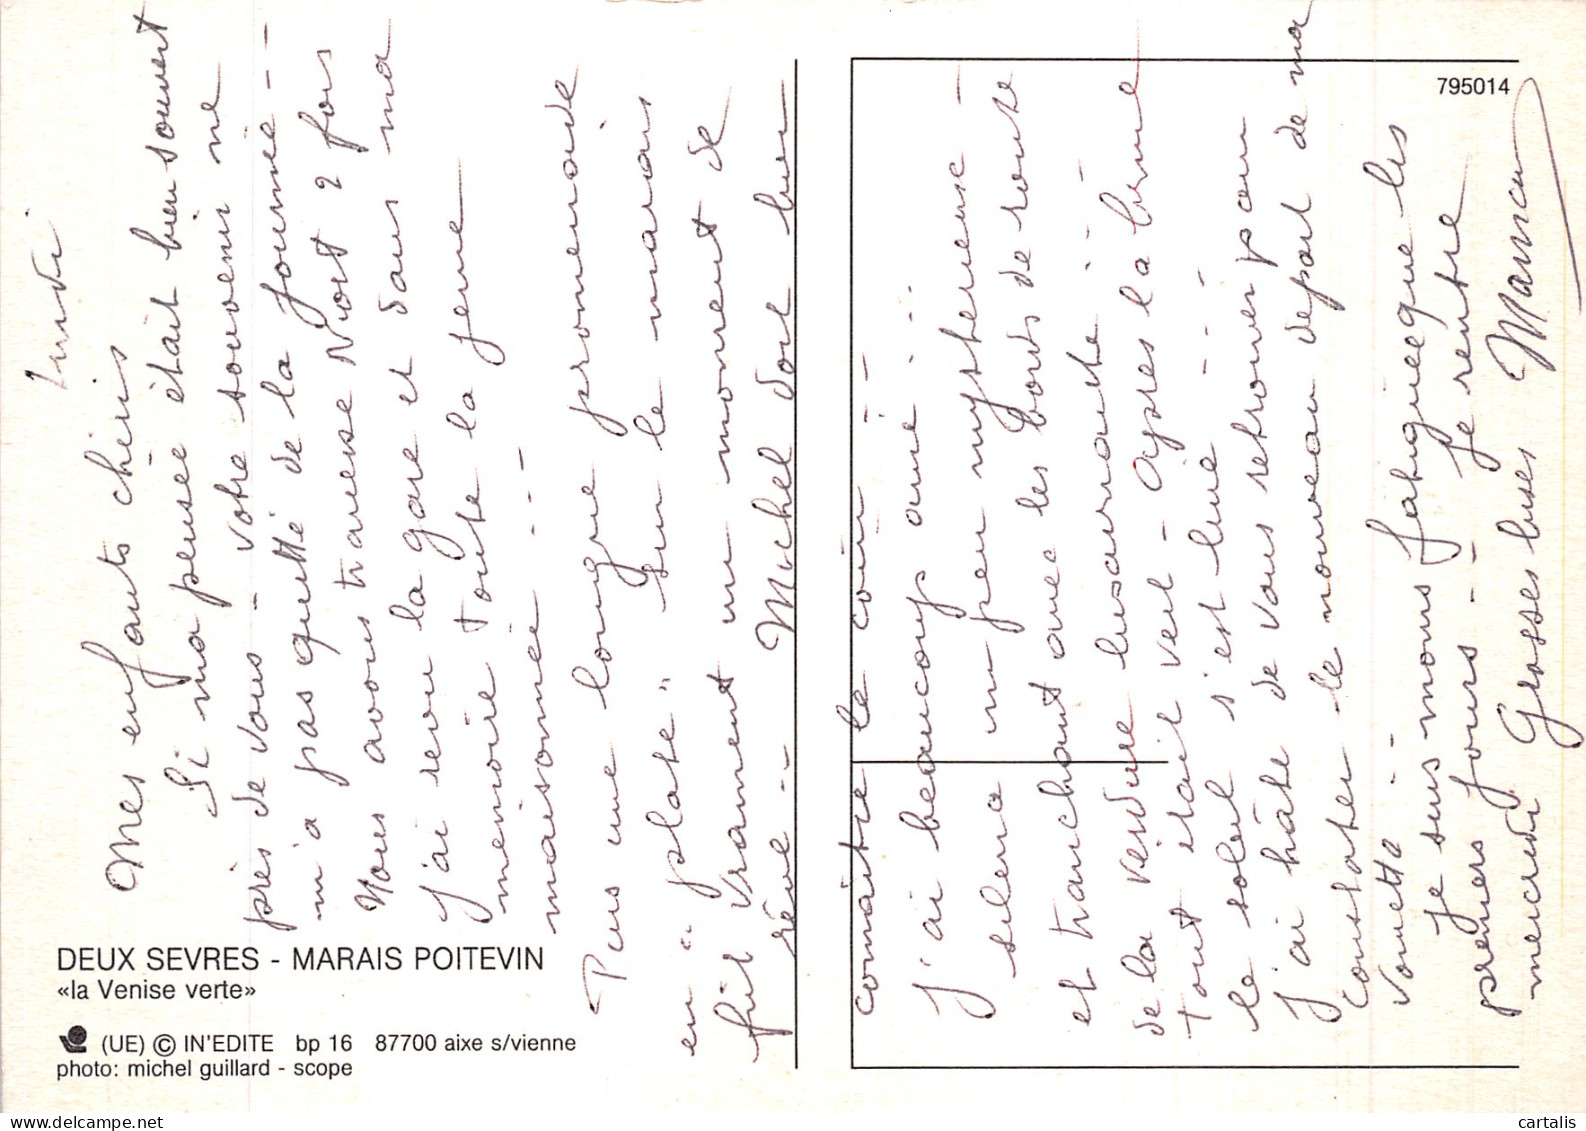 lundi
Mes enfants chéris
Si ma pensée était bien souvent
près de vous - votre souvenir ne
m'a pas quitté de la journée - -
Nous avons traversé Niort 2 fois
j'ai revu la gare et dans ma
mémoire toute la jeune
maisonnée - - -
Puis une longue promenade
en "plate" sur le marais
fut vraiment un moment de
rêve - - Michel doit bien
connaître le coin -
j'ai beaucoup aimé - - -
silence un peu mystérieuse -
et tranchant avec les bords de route
de la verdure luxuriante - - -
tout était vert - Après la brume
le soleil s'est levé - - -
j'ai hâte de vous retrouver pour
constater le nouveau départ de ma
Vonette - -
je suis moins fatiguée que les
premiers jours - - Je rentre
mercredi Grosses bises Maman
DEUX SEVRES - MARAIS POITEVIN
«la Venise verte»
(UE) © IN'EDITE bp 16 87700 aixe s/vienne
photo: michel guillard - scope
795014
cartalis